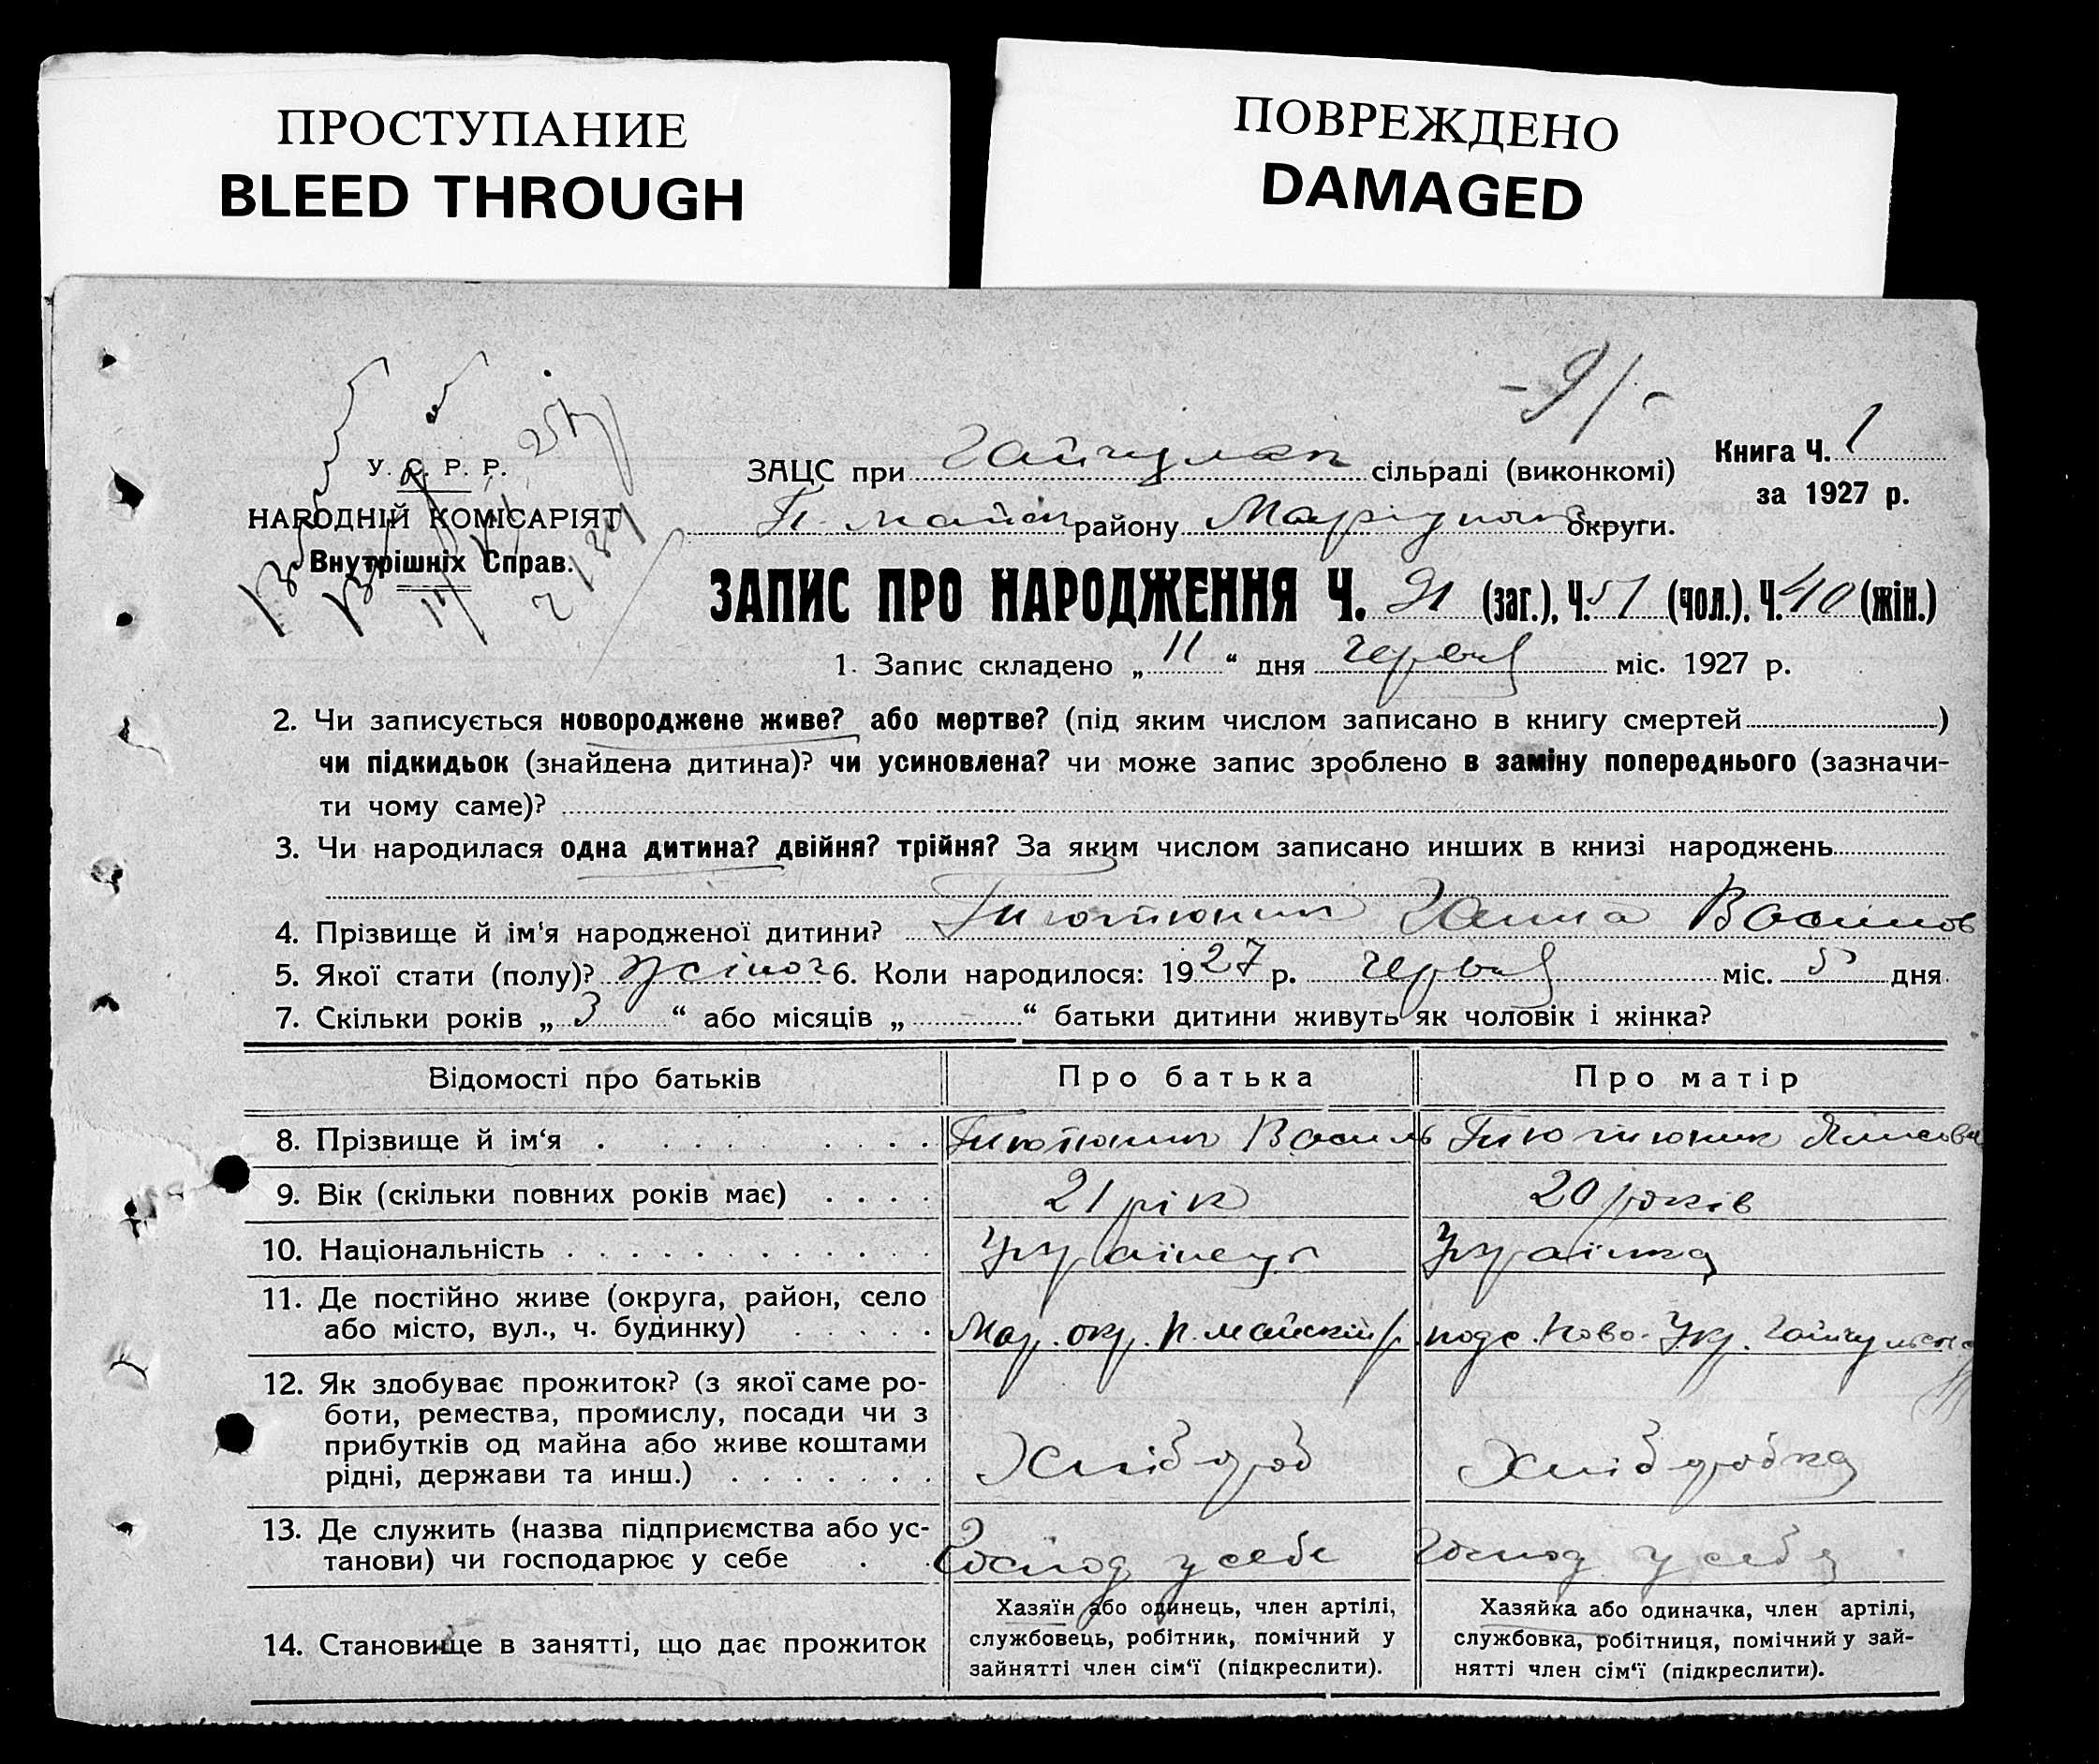 ПРОСТУПАНИЕ
BLEED THROUGH
ПОВРЕЖДЕНО
DAMAGED
- 91 -
У. С. Р. Р.
НАРОДНІЙ КОМІСАРІЯТ
Внутрішніх Справ.
ЗАЦС при Гайчулян сільраді (виконкомі)
П. майск району Маріупол округи.
Книга Ч. 1
за 1927 р.
ЗАПИС ПРО НАРОДЖЕННЯ Ч. 91 (заг.), Ч. 51 (чол.), Ч. 40 (жін.)
1. Запис складено „ 11 “ дня червня міс. 1927 р.
2. Чи записується новороджене живе? або мертве? (під яким числом записано в книгу смертей )
чи підкидьок (знайдена дитина)? чи усиновлена? чи може запис зроблено в заміну попереднього (зазначи-
ти чому саме)?
3. Чи народилася одна дитина? двійня? трійня? За яким числом записано инших в книзі народжень
4. Прізвище й ім'я народженої дитини? Тютюник Ганна Васильов
5. Якої стати (полу)? жіноч 6. Коли народилося: 1927 р. червня міс. 5 дня.
7. Скільки років „ 3 “ або місяців „ “ батьки дитини живуть як чоловік і жінка?
Відомості про батьків
Про батька
Про матір
8. Прізвище й ім‘я
Тютюник Василь
Тютюник
9. Вік (скільки повних років має)
21 рік
20 років
10. Національність
Українець
Українка
11. Де постійно живе (округа, район, село
або місто, вул., ч. будинку)
Мар. окр. П. майский р.
Ново-Укр. Гайчульськ
12. Як здобуває прожиток? (з якої саме ро-
боти, ремества, промислу, посади чи з
прибутків од майна або живе коштами
рідні, держави та инш.)
Хлібороб
Хліборобка
13. Де служить (назва підприємства або ус-
танови) чи господарює у себе
Господ у себе
Господ у себе
14. Становище в занятті, що дає прожиток
Хазяїн або одинець, член артілі,
службовець, робітник, помічний у
зайнятті член сім‘ї (підкреслити).
Хазяйка або одиначка, член артілі,
службовка, робітниця, помічний у зай-
нятті член сім‘ї (підкреслити).